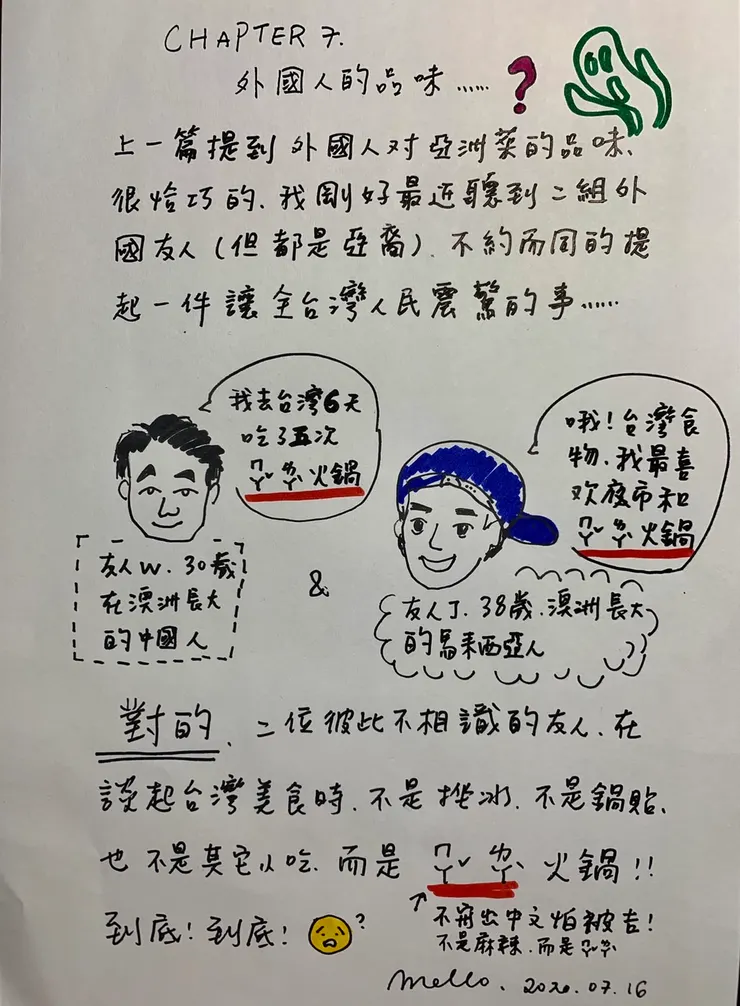 CHAPTER 7.
外國人的品味......?
上一篇提到外國人对亞洲菜的品味、
很恰巧的、我剛好最近聽到二組外
國友人(但都是亞裔)、不約而同的提
起一件讓全台灣人民震驚的事......
我去台灣6天
吃了五次
ㄇㄚˇ ㄌㄚˋ 火鍋
友人W、30歲
在澳洲長大
的中國人
&
哦!台灣食
物、我最喜
欢夜市和
ㄇㄚˇ ㄌㄚˋ 火鍋
友人J、38歲、澳洲長大
的馬来西亞人
對的、二位彼此不相識的友人、在
談起台灣美食時、不是挫冰、不是鍋貼、
也不是其它小吃、而是 ㄇㄚˇ ㄌㄚˋ 火鍋!!
到底!到底!?
↗不寫出中文怕被告!
不是麻辣、而是ㄇㄚˇㄌㄚˋ
Mello. 2020.07.16